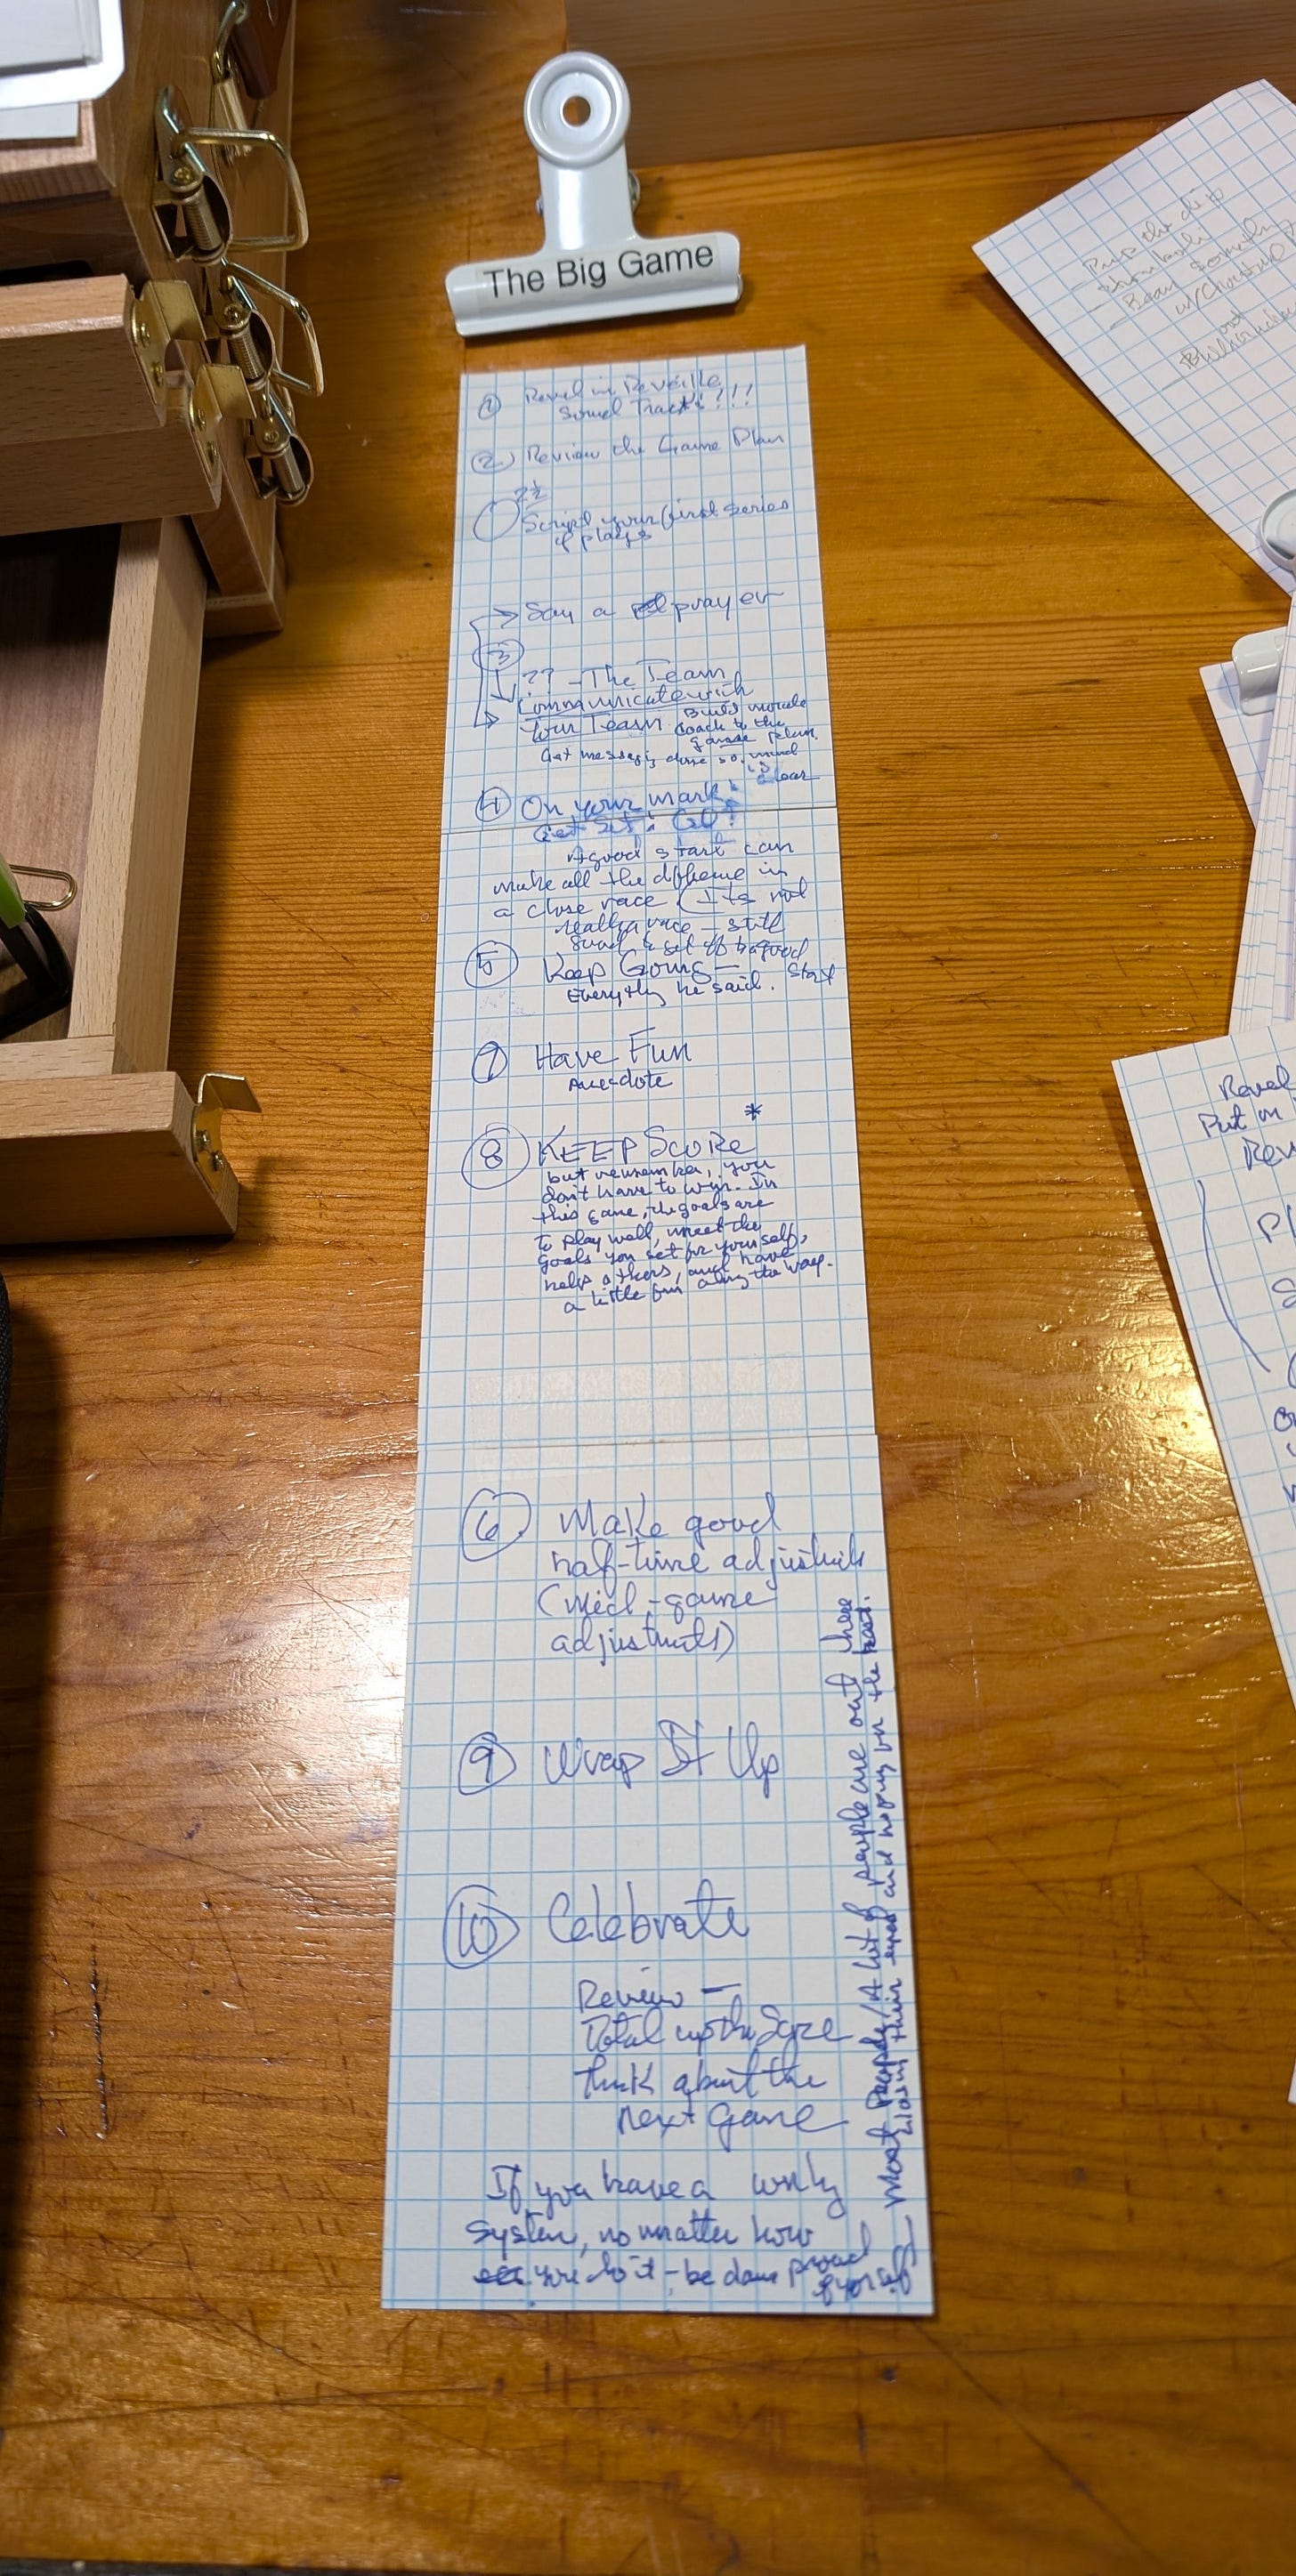 The Big Game
① Revel in Reveille
Sound Tracks!!!
② Review the Game Plan
2½
Script your first series
of plays
→ Say a prayer
③
?? - The Team
Communicate with
Your Team Build morale
Coach to the
game plan.
Get messaging done so mind
is clear
④ On your mark!
Get Set! Go!
A good start can
make all the difference in
a close race (Its not
really a race – still
good to set off to a good
start
⑤ Keep Going –
Everything he said.
⑦ Have Fun
Anecdote
*
⑧ KEEP SCORE
but remember, you
don't have to win. In
this game, the goals are
to play well, meet the
goals you set for yourself,
help others, and have
a little fun along the way.
⑥ Make good
half-time adjustments
(Mid-game
adjustments)
⑨ Wrap It Up
⑩ Celebrate
Review –
Total up the Score
Think about the
next Game
If you have a
System, no matter how
you do it - be damn proud
of yourself
Most People/A lot of people are out there
closing their eyes and hoping for the best.
Prep the dip
Read something
w/
Revel
Put on
Rev